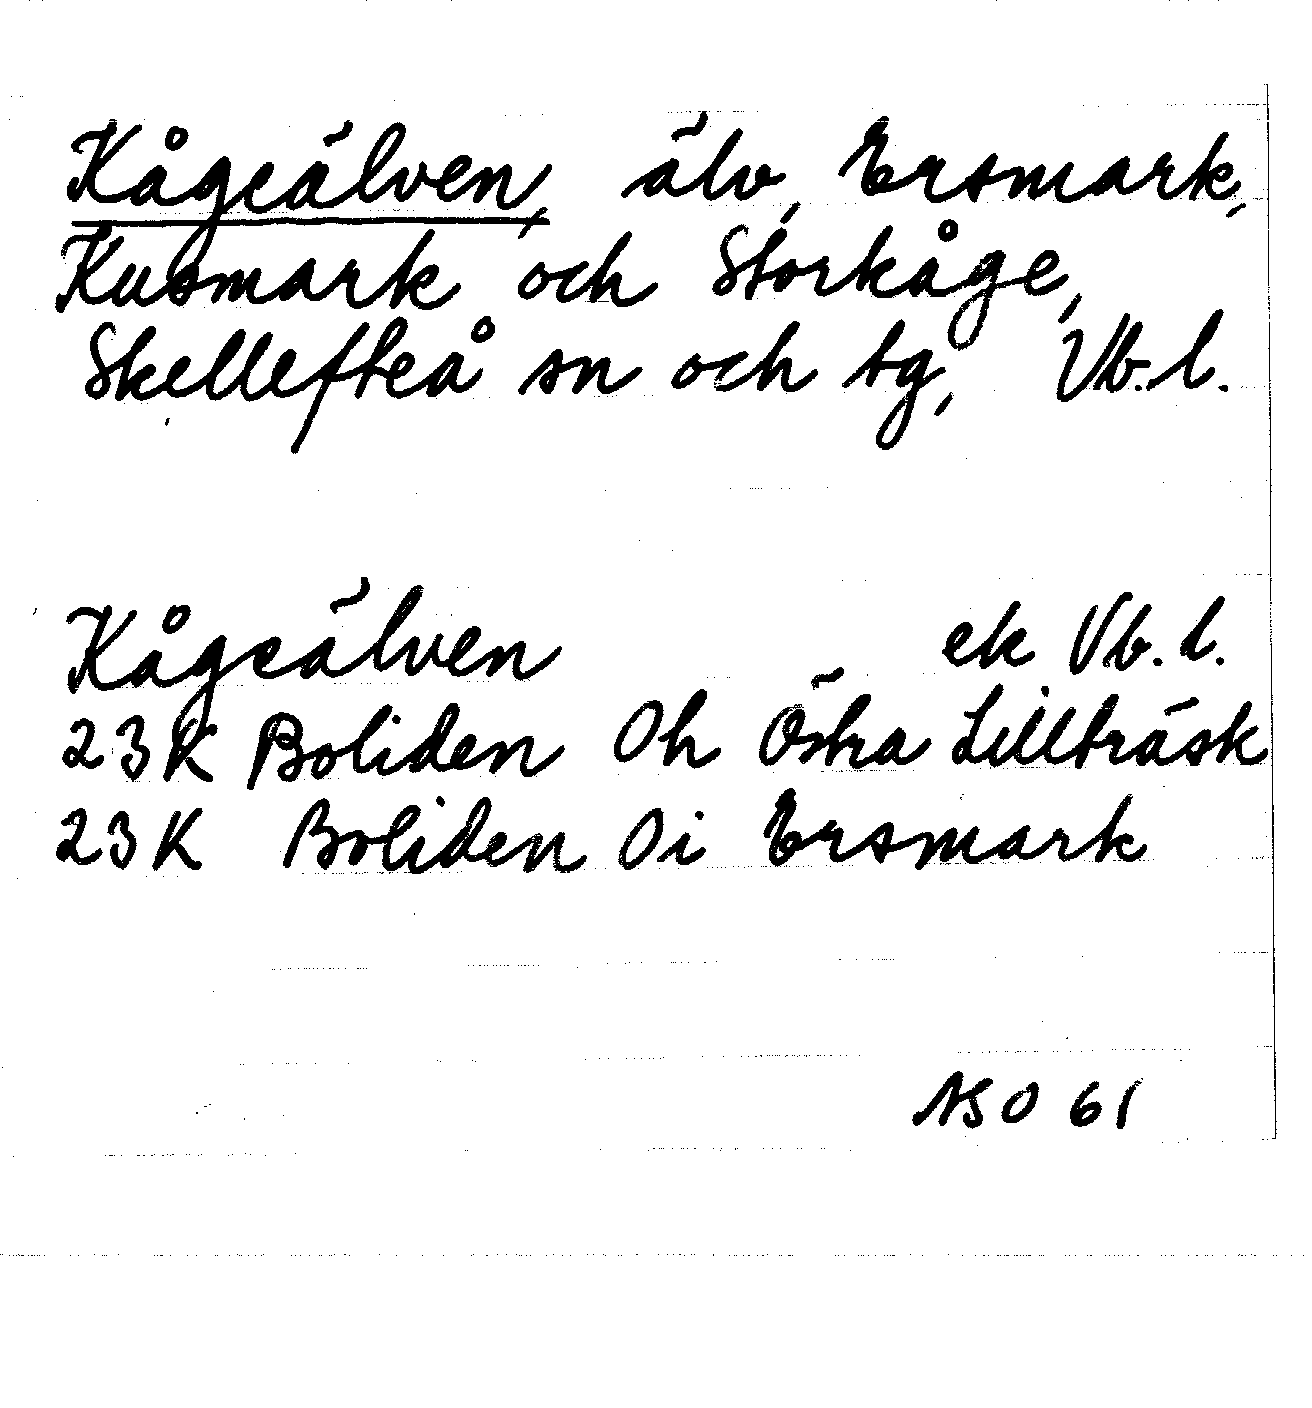 Kågeälven, älv, Ersmark,
Kusmark och Storkåge,
Skellefteå sn och tg, Vb.l.
Kågeälven ek Vb.l.
23K Boliden Oh Östra Lillträsk
23K Boliden Oi Ersmark
NSO 61